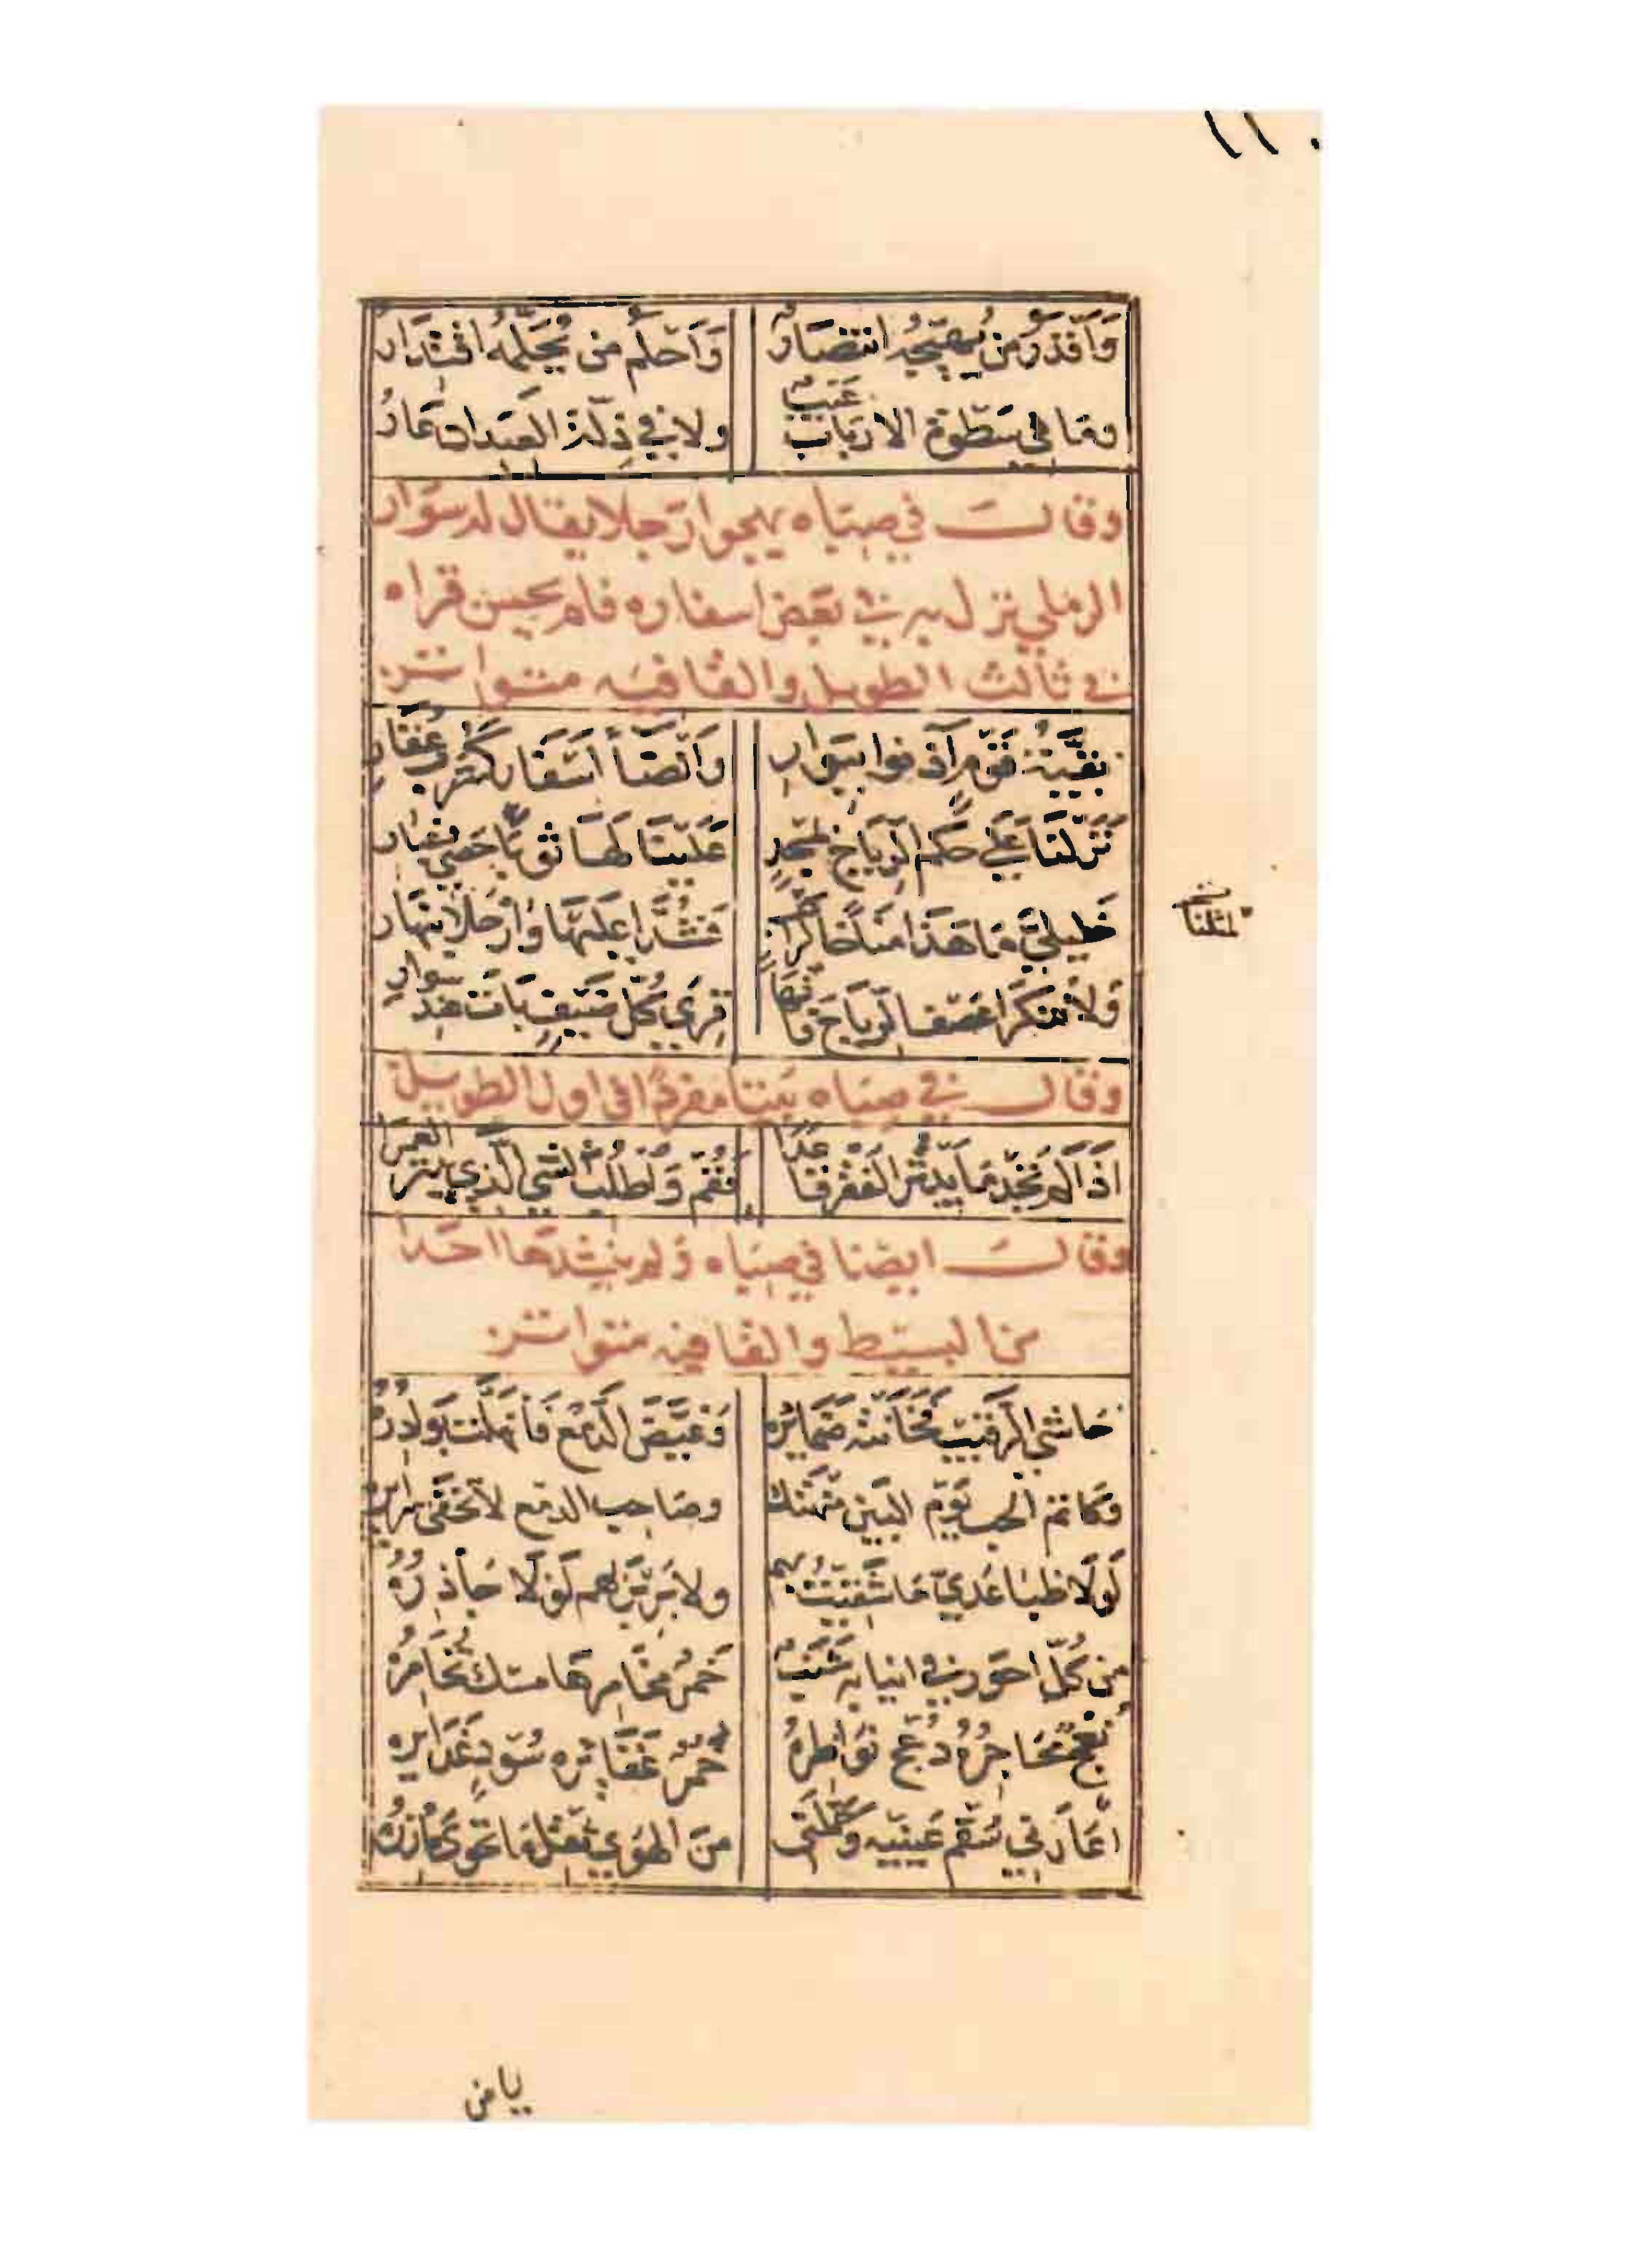 ١١٠
وَأَقْدَرُ مَن يُهَيِّجُهُ انتِصَارٌ وَأَحْلَمُ مَن يُحَلِّمُهُ اقْتِدَارُ
وما في سَطْوَةِ الارباب عَيبٌ ولا في ذِلَّةِ العبدان عَارُ
وقال في صباه يهجوا رجلا يقال له سوار
الرملي نزل به في بعض اسفاره فلم يحسن قراه
في ثالث الطويل والقافيه متواتر
بقيَّةُ قَوْمٍ آذنوا ببَوارِ وَأنضَاء أسْفَارٍ كشَرْبِ عُقَارِ
نَزَلْنَا عَلَى حُكم الرِّيَاحِ بمَسجدٍ عَلَيْنَا لَهَا ثَوْبَا حَصًى وغُبَارِ
خَلِيلَيَّ مَا هَذَا مُنَاخًا فَشُدَّا عليها وارْحَلا بنهار
امثلنا
وَلا تنكرا عَصْفَ الرّياحِ فانها قِرَى كُلِّ ضَيْفٍ بَاتَ عند سوارِ
وقال في صباه بيتا مفردًا في اول الطويل
اذا لم تَجِدْ مَا يبتُر الفَقْرَ قاعدًا فَقُمْ وَاطْلُبِ الشيَ الَّذي يبتر العمرا
وقال ايضا في صباه ولم ينشدها احدا
من البسيط والقافيه متواتر
حَاشَى الرَّقيبَ فَخَانَتْهُ ضَمَائِرُهُ وَغَيَّضَ الدَّمْعَ فَانْهَلَّتْ بَوادِرُهُ
وكاتم الحب يَوْمَ البَيْنِ مُنْهَتِك وصَاحب الدمع لا تَخْفَى سرائره
لَوْلَا ظبا عَدِيٍّ مَا شَقِيتُ بهم ولا بِرَبْرَبِهم لَوْلَا جَآذِرُهُ
مِن كُلِّ احور في انيابه شَنَبٌ خَمرٌ مخَامِرهَا مسك تُخَامِرُهُ
نُعْجٌ مَحَاجِرُهُ دُعْجٌ نَوَاظِرُهُ حُمْرٌ غَفَايِرُه سُودٌ غَدَايِرُه
أعَارَني سُقْمَ عَينَيْهِ وَحَمَّلَني مِنَ الهَوَى ثِقْلَ مَا تَحْوي مَآزِرُهُ
يا من